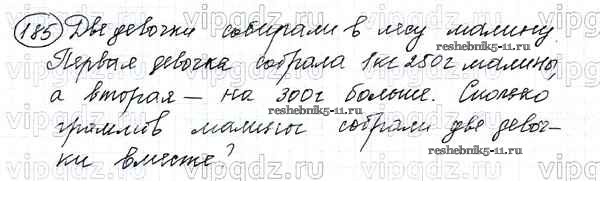 185) Две девочки собирали в лесу малину.
Первая девочка собрала 1кг 250г малины,
а вторая – на 300г больше. Сколько
граммов малины собрали две девоч-
ки вместе?
vipgdz.ru
reshebnik5-11.ru
reshebnik5-11.ru
reshebnik5-11.ru